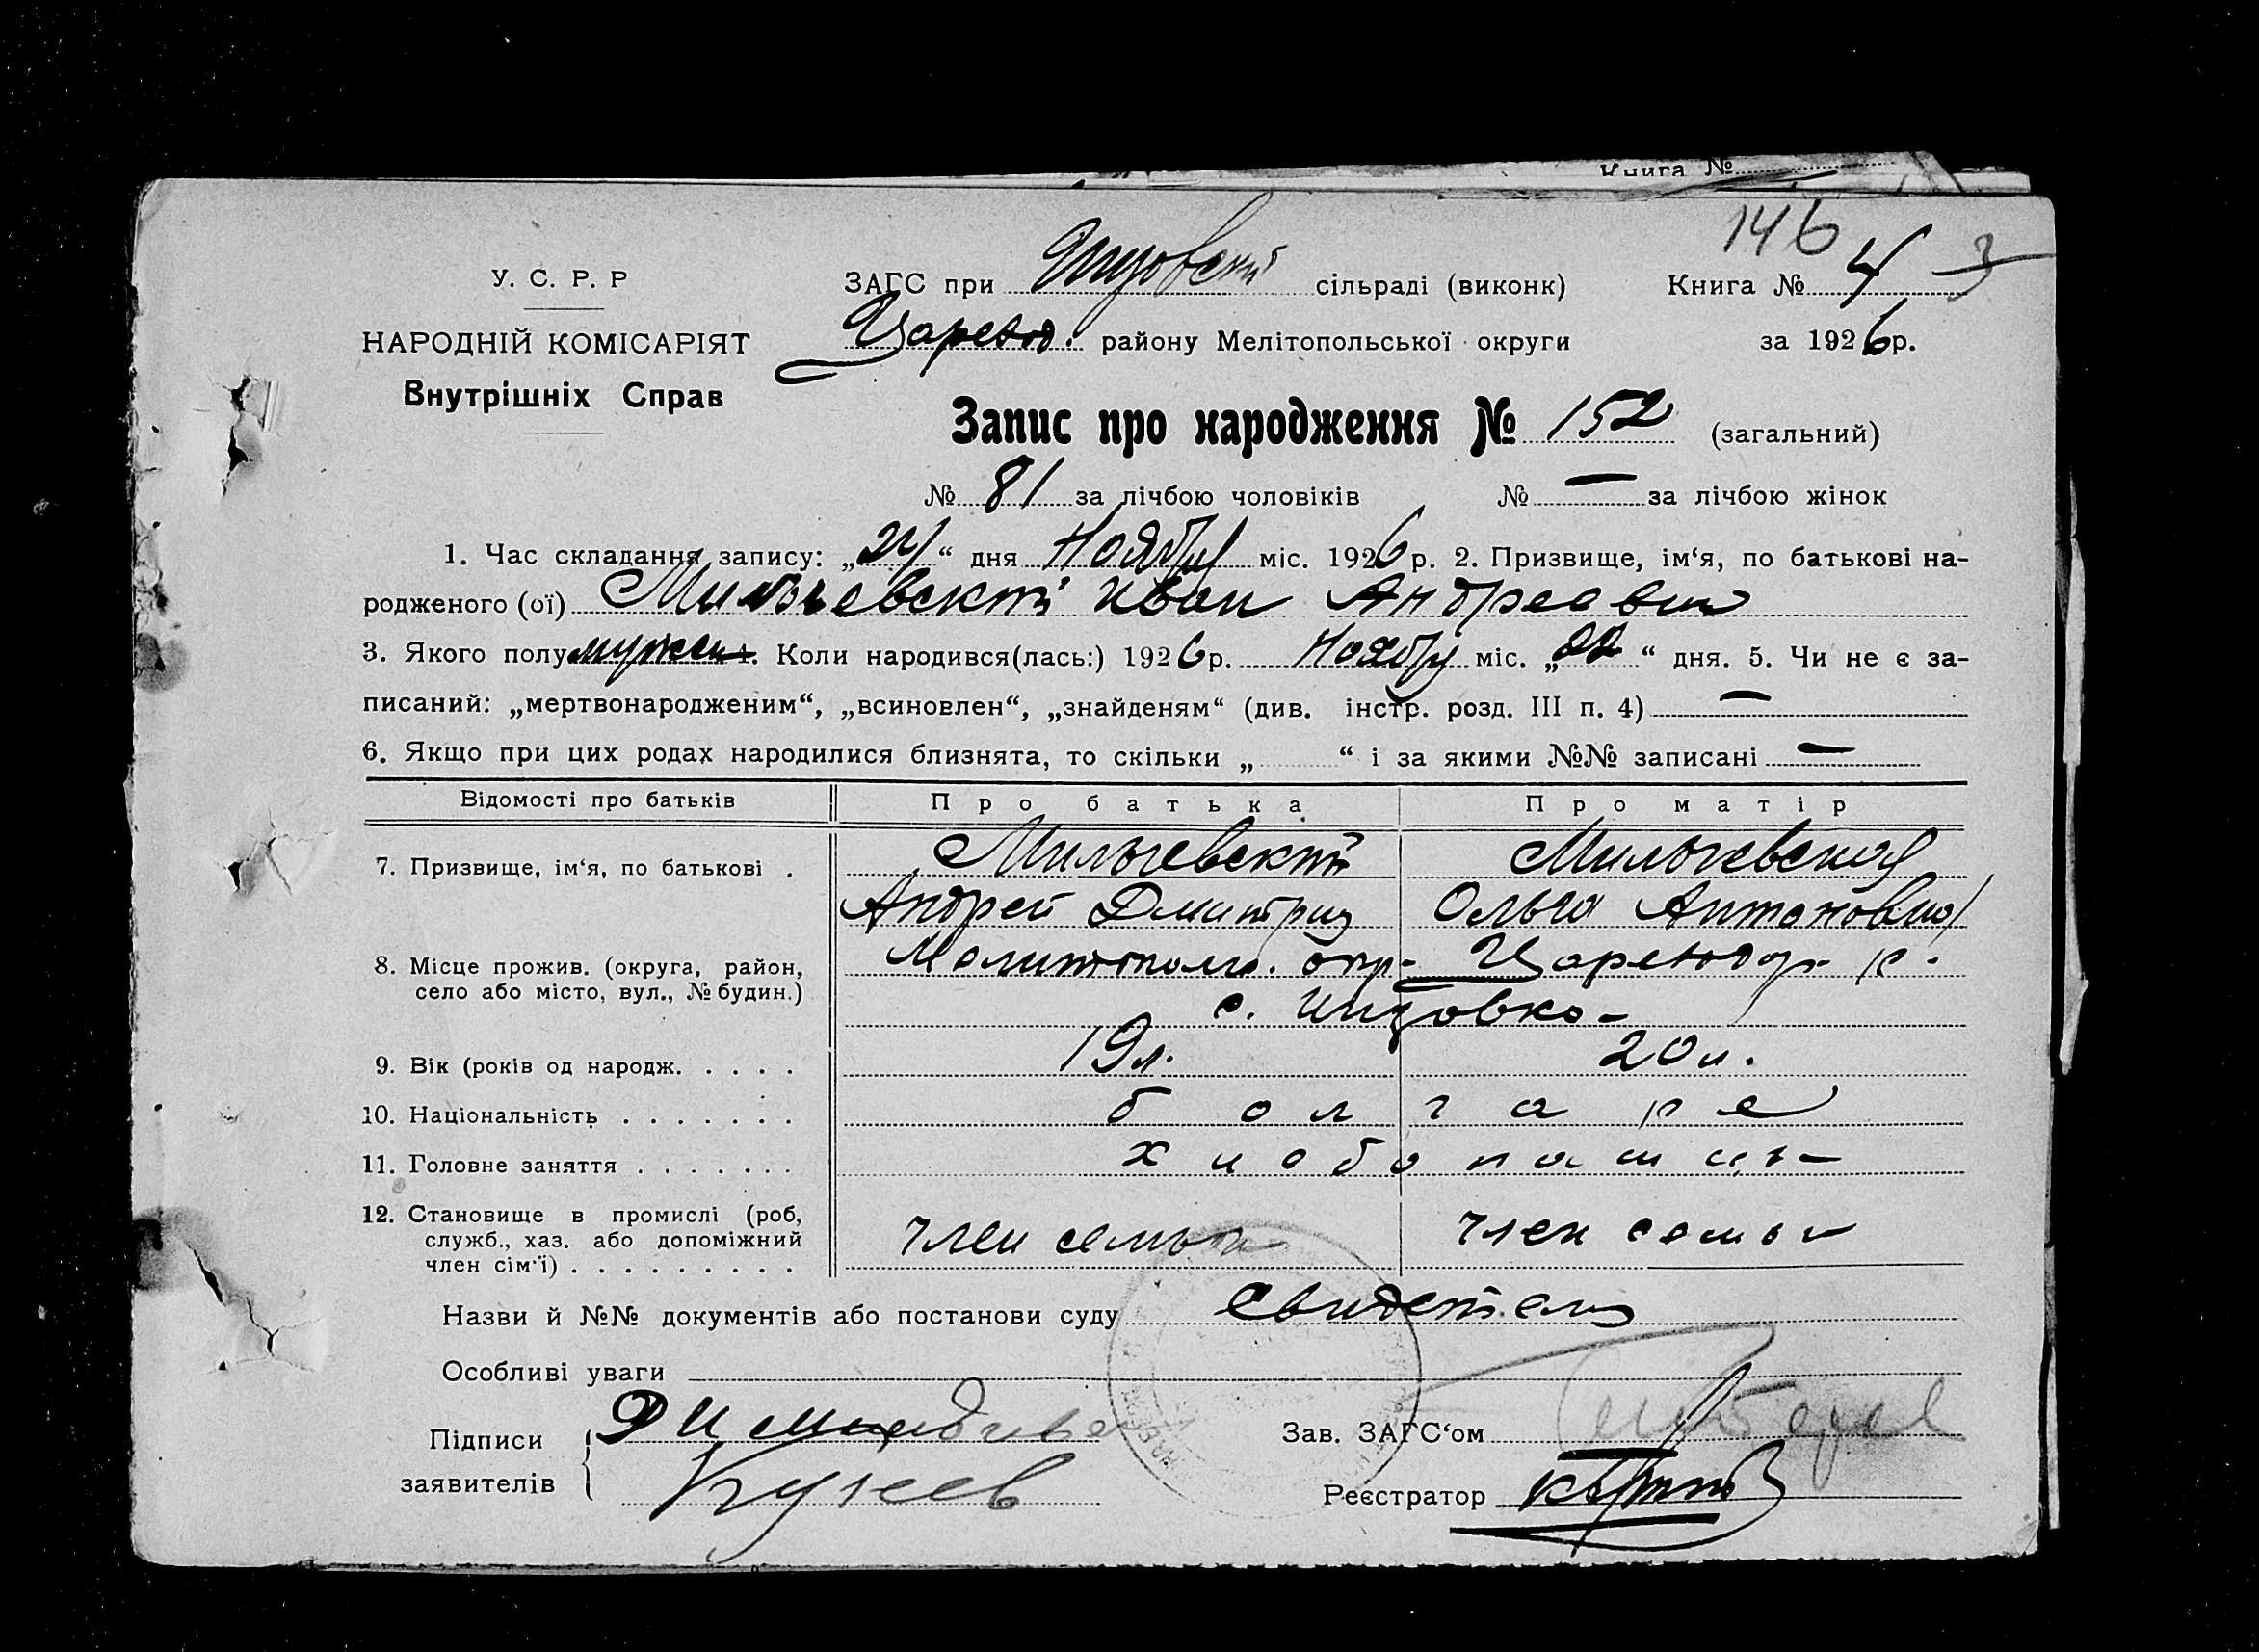 Книга №
146
У. С. Р. Р
ЗАГС при Инзовскій сільраді (виконк) Книга № 4 3
НАРОДНІЙ КОМІСАРІЯТ
Царевод. району Мелітопольської округи за 1926 р.
Внутрішніх Справ
Запис про народження № 152 (загальний)
№ 81 за лічбою чоловіків № — за лічбою жінок
1. Час складання запису: „24“ дня Ноября міс. 1926 р. 2. Призвище, ім‘я, по батькові на-
родженого (ої) Мильчевский Иван Андреевич
3. Якого полу мужск. Коли народився(лась:) 1926 р. Ноября міс. „22“ дня. 5. Чи не є за-
писаний: „мертвонародженим“, „всиновлен“, „знайденям“ (див. інстр. розд. III п. 4) —
6. Якщо при цих родах народилися близнята, то скільки „ “ і за якими №№ записані —
Відомості про батьків Про батька Про матір
7. Призвище, ім‘я, по батькові . Мильчевский Мильчевская
Андрей Дмитриев Ольга Антоновна
8. Місце прожив. (округа, район, Мелитопол. окр. Цареводар. р.
село або місто, вул., № будин.)
с. Инзовка
9. Вік (років од народж. . . . . 19 л. 20 л.
10. Національність . . . . . . . болгаре
11. Головне заняття . . . . . . . хлебопашцы
12. Становище в промислі (роб,
служб., хаз. або допоміжний член семьи член семьи
член сім‘ї) . . . . . . . . .
Назви й №№ документів або постанови суду свидетели
Особливі уваги
Підписи
Зав. ЗАГС‘ом
заявителів
Реєстратор